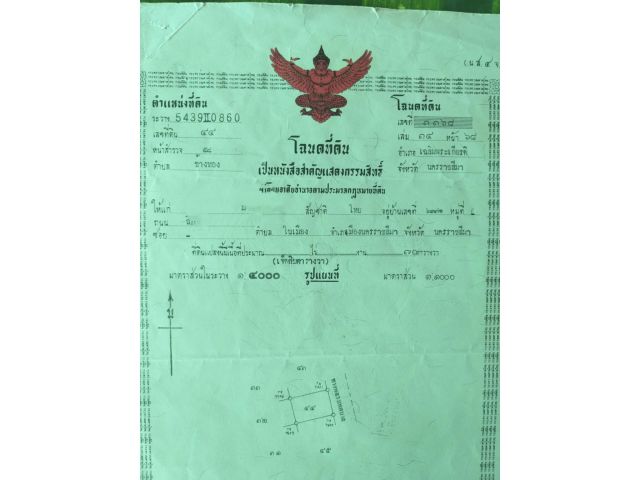 (น.ส. ๔ จ
ตำแหน่งที่ดิน
ระวาง 5439II0860
เลขที่ดิน ๔๔
หน้าสำรวจ
ตำบล ช้างทอง
โฉนดที่ดิน
เลขที่ ๓๓๖๘
เล่ม ๓๔ หน้า ๖๘
อำเภอ เฉลิมพระเกียรติ
จังหวัด นครราชสีมา
โฉนดที่ดิน
เป็นหนังสือสำคัญแสดงกรรมสิทธิ์
ออกโดยอาศัยอำนาจตามประมวลกฎหมายที่ดิน
ให้แก่ สัญชาติ ไทย อยู่บ้านเลขที่ หมู่ที่
ถนน
ซอย ตำบล ในเมือง อำเภอเมืองนครราชสีมา จังหวัด นครราชสีมา
ที่ดินแปลงนี้มีเนื้อที่ประมาณ ไร่ งาน ตารางวา
(เจ็ดสิบตารางวา)
มาตราส่วนในระวาง ๑:๔๐๐๐ รูปแผนที่ มาตราส่วน ๑:๑๐๐๐
น
๔๓
๓๓
๔๔
๓๒
๓๑
๔๕